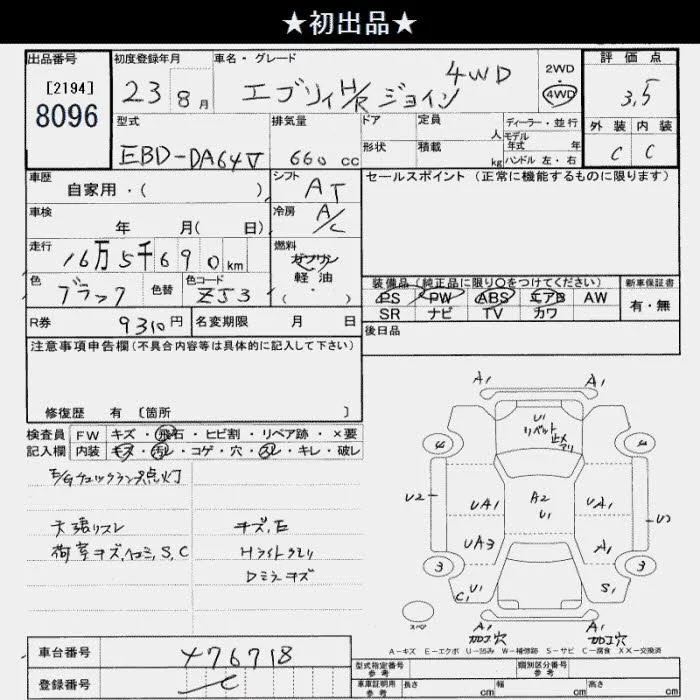 ★初出品★
出品番号
[2194]
8096
初度登録年月
23 8月
車名・グレード
エブリィ H/R ジョイン 4WD
2WD
・
4WD
評価点
3.5
型式
EBD-DA64V
排気量
660 cc
ドア
形状
定員
人
積載
kg
ディーラー・並行
モデル
年式 年
ハンドル 左・右
外装 内装
C C
車歴
自家用・( )
シフト
AT
セールスポイント (正常に機能するものに限ります)
車検
年 月( 日)
冷房
A/C
走行
16万5千690km
燃料
ガソリン
軽油
( ・ )
色
ブラック
色替
色コード
ZJ3
装備品(純正品に限り○をつけてください)
PS PW ABS エアB AW
SR ナビ TV カワ
新車保証書
有・無
R券
9310円
名変期限 月 日
後日品
注意事項申告欄(不具合内容等は具体的に記入して下さい)
修復歴 有 〔箇所 〕
検査員
記入欄
FW キズ・飛石・ヒビ割・リペア跡・×要
内装 キズ・汚レ・コゲ・穴・スレ・キレ・破レ
E/Gチェックランプ点灯
天張リスレ
荷室キズ,ヘコミ,S,C
キズ,E
Hライトクモリ
Dミラーキズ
A1 A1
U1
リペット
止メ
アリ
4 4
U2
UA1
A2
U1
UA1
UA3
A1
3 3
C1 U1
S1
スペア
A1 A1
加工穴 加工穴
A-キズ E-エクボ U-凹み W-補修跡 S-サビ C-腐食 XX-交換済
車台番号
476718
登録番号
型式指定番号
参考
類別区分番号
参考
車庫証明用
参考
長さ cm
幅 cm
高さ cm